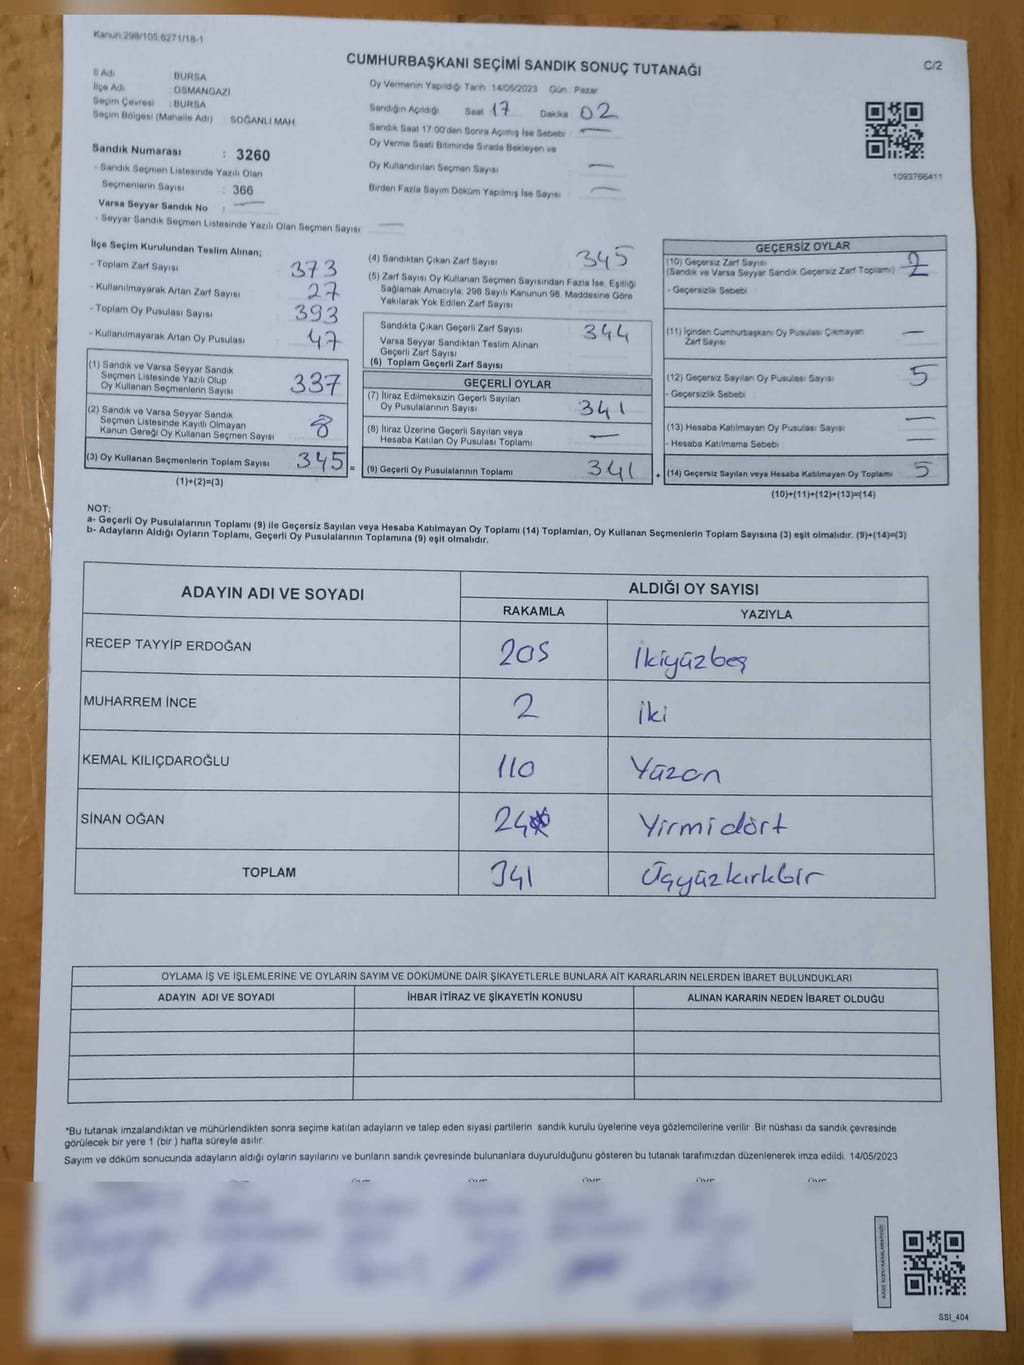 Kanun:298/105,6271/16-1
CUMHURBAŞKANI SEÇİMİ SANDIK SONUÇ TUTANAĞI
C/2
İl Adı BURSA
İlçe Adı : OSMANGAZİ
Seçim Çevresi : BURSA
Seçim Bölgesi (Mahalle Adı) : SOĞANLI MAH.
Oy Vermenin Yapıldığı Tarih 14/05/2023 Gün : Pazar
Sandığın Açıldığı Saat 17 Dakika 02
Sandık Saat 17 00'den Sonra Açılmış İse Sebebi —
Oy Verme Saati Bitiminde Sırada Bekleyen ve
Oy Kullandırılan Seçmen Sayısı —
Birden Fazla Sayım Döküm Yapılmış İse Sayısı —
1093766411
Sandık Numarası : 3260
- Sandık Seçmen Listesinde Yazılı Olan
Seçmenlerin Sayısı : 366
Varsa Seyyar Sandık No : —
- Seyyar Sandık Seçmen Listesinde Yazılı Olan Seçmen Sayısı —
İlçe Seçim Kurulundan Teslim Alınan;
- Toplam Zarf Sayısı 373
- Kullanılmayarak Artan Zarf Sayısı 27
- Toplam Oy Pusulası Sayısı 393
- Kullanılmayarak Artan Oy Pusulası 47
(1) Sandık ve Varsa Seyyar Sandık
Seçmen Listesinde Yazılı Olup
Oy Kullanan Seçmenlerin Sayısı 337
(2) Sandık ve Varsa Seyyar Sandık
Seçmen Listesinde Kayıtlı Olmayan
Kanun Gereği Oy Kullanan Seçmen Sayısı 8
(3) Oy Kullanan Seçmenlerin Toplam Sayısı 345 =
(1)+(2)=(3)
(4) Sandıktan Çıkan Zarf Sayısı 345
(5) Zarf Sayısı Oy Kullanan Seçmen Sayısından Fazla İse, Eşitliği
Sağlamak Amacıyla, 298 Sayılı Kanunun 98. Maddesine Göre
Yakılarak Yok Edilen Zarf Sayısı
Sandıkta Çıkan Geçerli Zarf Sayısı 344
Varsa Seyyar Sandıktan Teslim Alınan
Geçerli Zarf Sayısı
(6) Toplam Geçerli Zarf Sayısı
GEÇERLİ OYLAR
(7) İtiraz Edilmeksizin Geçerli Sayılan
Oy Pusulalarının Sayısı 341
(8) İtiraz Üzerine Geçerli Sayılan veya
Hesaba Katılan Oy Pusulası Toplamı —
(9) Geçerli Oy Pusulalarının Toplamı 341 +
GEÇERSİZ OYLAR
(10) Geçersiz Zarf Sayısı
(Sandık ve Varsa Seyyar Sandık Geçersiz Zarf Toplamı)
- Geçersizlik Sebebi
(11) İçinden Cumhurbaşkanı Oy Pusulası Çıkmayan —
Zarf Sayısı
(12) Geçersiz Sayılan Oy Pusulası Sayısı 5
- Geçersizlik Sebebi
(13) Hesaba Katılmayan Oy Pusulası Sayısı —
- Hesaba Katılmama Sebebi —
(14) Geçersiz Sayılan veya Hesaba Katılmayan Oy Toplamı 5
(10)+(11)+(12)+(13)=(14)
NOT:
a- Geçerli Oy Pusulalarının Toplamı (9) ile Geçersiz Sayılan veya Hesaba Katılmayan Oy Toplamı (14) Toplamları, Oy Kullanan Seçmenlerin Toplam Sayısına (3) eşit olmalıdır. (9)+(14)=(3)
b- Adayların Aldığı Oyların Toplamı, Geçerli Oy Pusulalarının Toplamına (9) eşit olmalıdır.
ADAYIN ADI VE SOYADI ALDIĞI OY SAYISI
RAKAMLA YAZIYLA
RECEP TAYYİP ERDOĞAN 205 İkiyüzbeş
MUHARREM İNCE 2 iki
KEMAL KILIÇDAROĞLU 110 Yüzon
SİNAN OĞAN 24 Yirmidört
TOPLAM 341 Üçyüzkırkbir
OYLAMA İŞ VE İŞLEMLERİNE VE OYLARIN SAYIM VE DÖKÜMÜNE DAİR ŞİKAYETLERLE BUNLARA AİT KARARLARIN NELERDEN İBARET BULUNDUKLARI
ADAYIN ADI VE SOYADI İHBAR İTİRAZ VE ŞİKAYETİN KONUSU ALINAN KARARIN NEDEN İBARET OLDUĞU
*Bu tutanak imzalandıktan ve mühürlendikten sonra seçime katılan adayların ve talep eden siyasi partilerin sandık kurulu üyelerine veya gözlemcilerine verilir .Bir nüshası da sandık çevresinde
görülecek bir yere 1 (bir ) hafta süreyle asılır.
Sayım ve döküm sonucunda adayların aldığı oyların sayılarını ve bunların sandık çevresinde bulunanlara duyurulduğunu gösteren bu tutanak tarafımızdan düzenlenerek imza edildi. 14/05/2023
SSİ_404